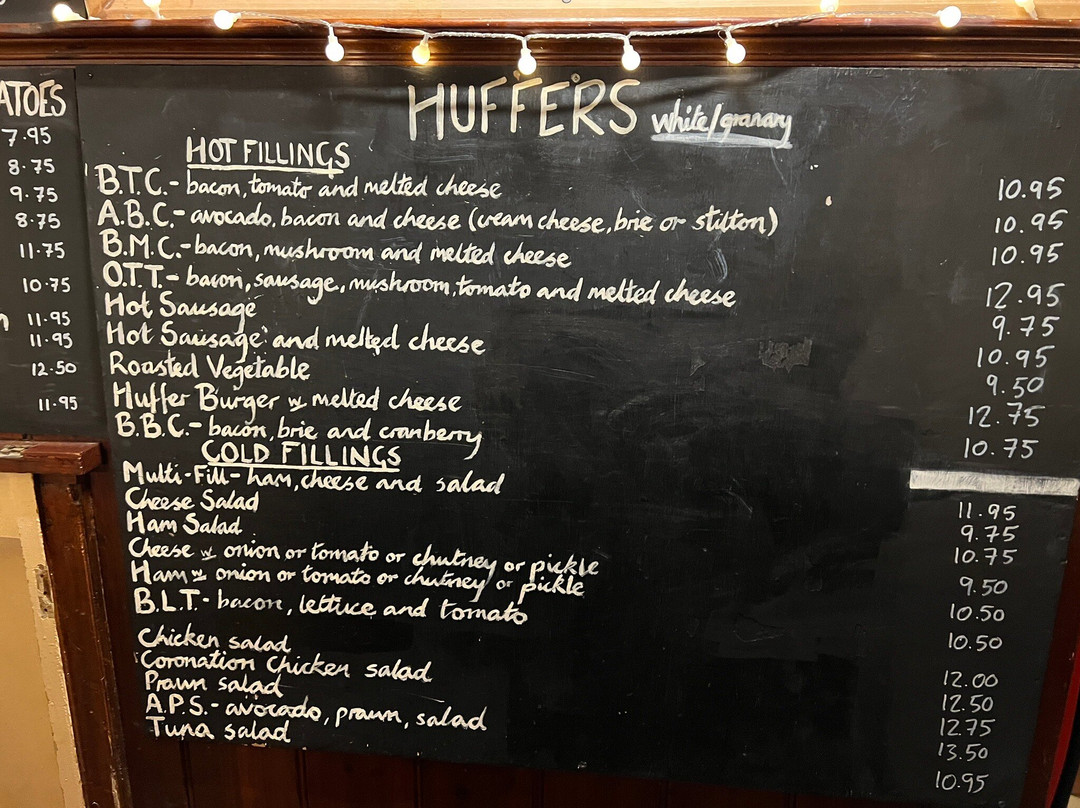 ATOES
7.95
8.75
9.75
8.75
11.75
10.75
11.95
11.95
12.50
11.95
HUFFERS white/granary
HOT FILLINGS
B.T.C.- bacon, tomato and melted cheese 10.95
A.B.C.- avocado, bacon and cheese (cream cheese, brie or stilton) 10.95
B.M.C.- bacon, mushroom and melted cheese 10.95
O.T.T.- bacon, sausage, mushroom, tomato and melted cheese 12.95
Hot Sausage 9.75
Hot Sausage and melted cheese 10.95
Roasted Vegetable 9.50
Huffer Burger w melted cheese 12.75
B.B.C.- bacon, brie and cranberry 10.75
COLD FILLINGS
Multi-Fill- ham, cheese and salad 11.95
Cheese Salad 9.75
Ham Salad 10.75
Cheese w onion or tomato or chutney or pickle 9.50
Ham w onion or tomato or chutney or pickle 10.50
B.L.T.- bacon, lettuce and tomato 10.50
Chicken salad 12.00
Coronation Chicken salad 12.50
Prawn salad 12.75
A.P.S.- avocado, prawn, salad 13.50
Tuna salad 10.95